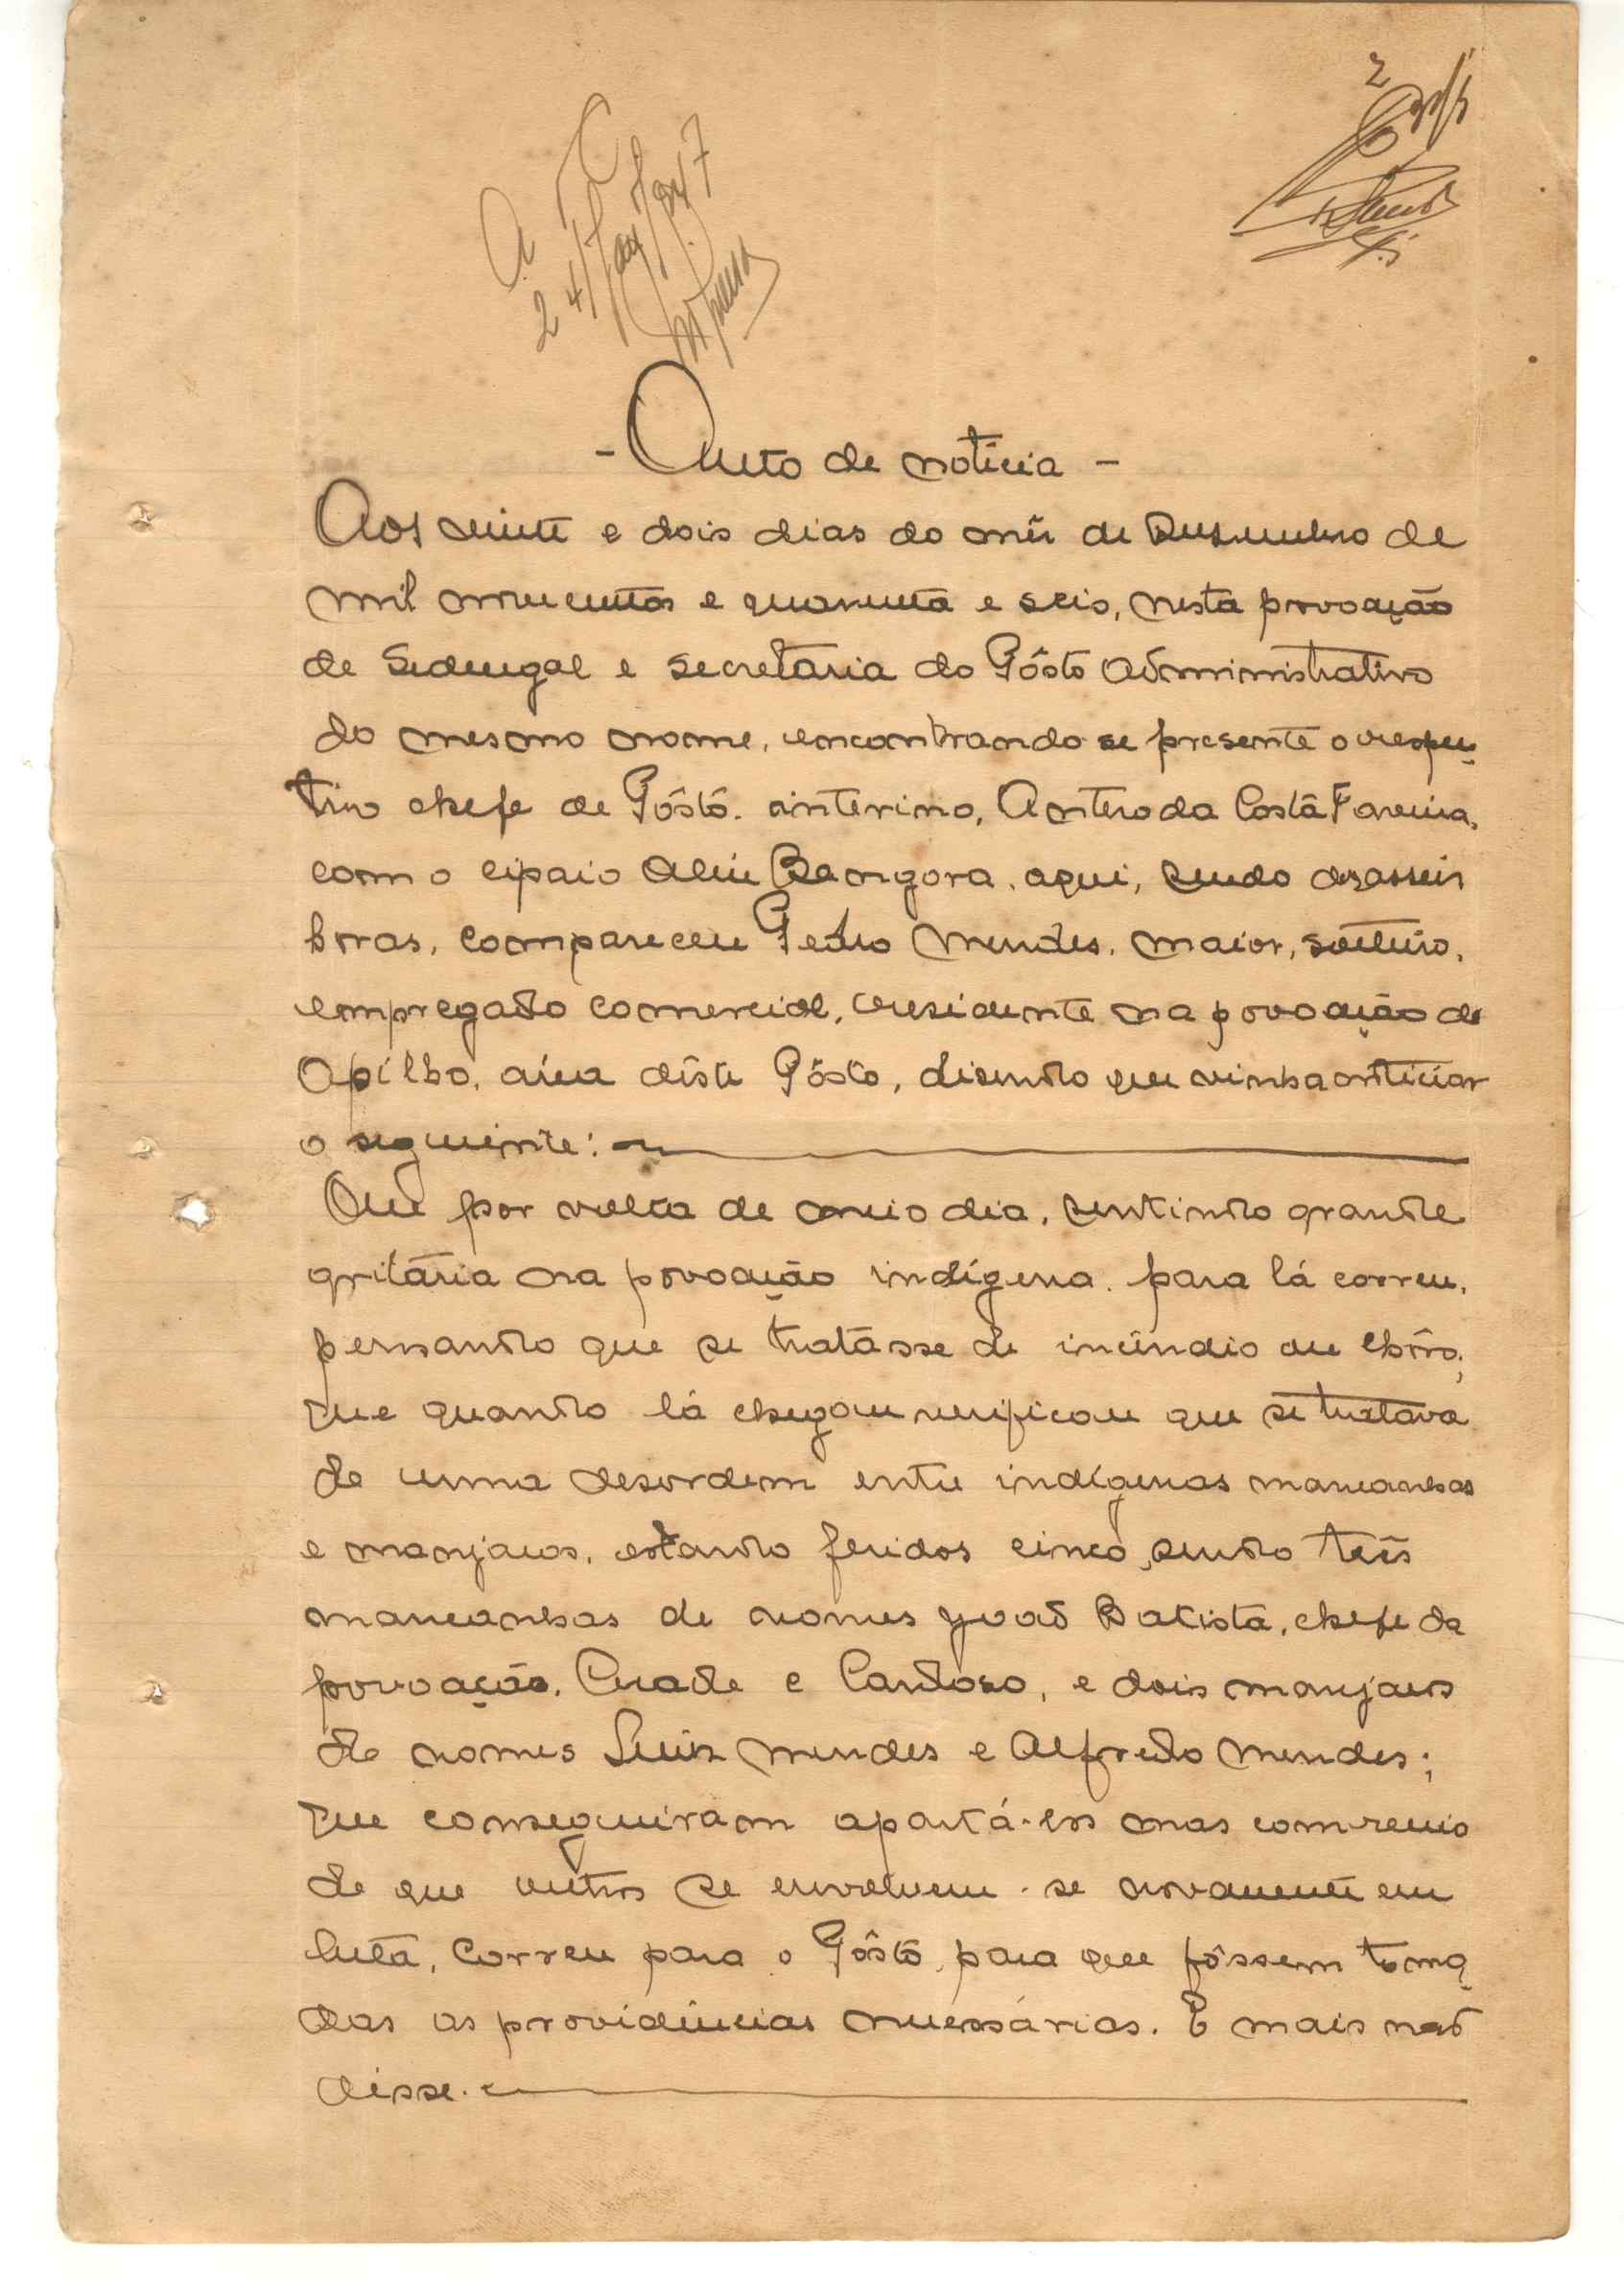 2
A.
24/Jan/947
- Auto de noticia -
Aos vinte e dois dias do mês de Dezembro de
mil novecentos e quarenta e seis, nesta povoação
de Sedengal e secretaria do Pôsto Administrativo
do mesmo nome, encontrando-se presente o respec-
tivo chefe de Pôsto. interino, Antero da Costa
com o cipaio Aliu Bangora. aqui, sendo dezasseis
horas, compareceu Pedro Mendes, maior, solteiro,
empregado comercial, residente na povoação de
Apilho, área dêste Pôsto, dizendo que vinha noticiar
o seguinte:
Que por volta de meio dia, sentindo grande
gritaria na povoação indígena. para lá correu,
pensando que se tratasse de incêndio ou chôro;
que quando lá chegou verificou que se tratava
de uma desordem entre indígenas mancanhas
e manjacos, estando feridos cinco, sendo três
mancanhas de nomes João Batista, chefe da
povoação, e Cardoso, e dois manjacos
de nomes Luiz Mendes e Alfredo Mendes;
que conseguiram apartá-los mas com receio
de que outros se envolvem-se novamente em
luta, correu para o Pôsto, para que fôssem toma-
das as providências necessárias. E mais não
disse.